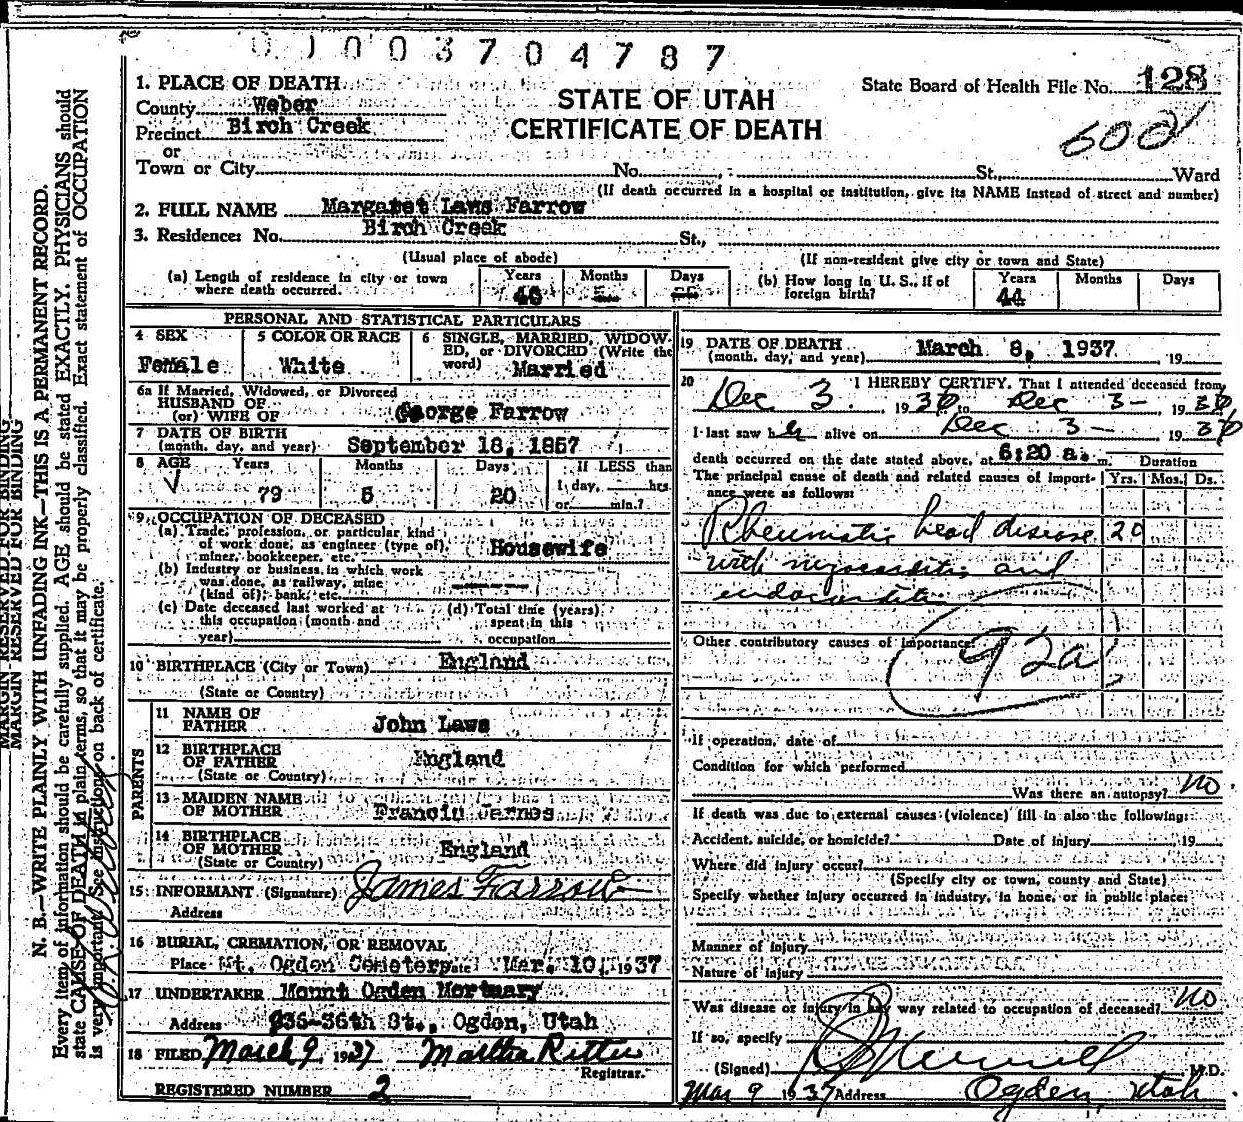 0 1 0 0 3 7 0 4 7 8 7
1. PLACE OF DEATH
State Board of Health File No. 128
County Weber
STATE OF UTAH
Precinct Birch Creek
CERTIFICATE OF DEATH
or
Town or City No. St., Ward
(If death occurred in a hospital or institution, give its NAME instead of street and number)
2. FULL NAME Margaret Laws Farrow
3. Residence: No. Birch Creek St.,
(Usual place of abode) (If non-resident give city or town and State)
(a) Length of residence in city or town where death occurred. Years Months Days
(b) How long in U. S., if of foreign birth? Years 44 Months Days
PERSONAL AND STATISTICAL PARTICULARS
4 SEX Female
5 COLOR OR RACE White
6 SINGLE, MARRIED, WIDOWED, or DIVORCED (Write the word) Married
6a If Married, Widowed, or Divorced
HUSBAND OF
(or) WIFE OF George Farrow
7 DATE OF BIRTH
(month, day, and year) September 18, 1857
8 AGE Years Months Days If LESS than
79 5 20 1 day, hrs.
or min.?
9 OCCUPATION OF DECEASED
(a) Trade, profession, or particular kind
of work done, as engineer (type of), Housewife
miner, bookkeeper, etc.
(b) Industry or business, in which work
was done, as railway, mine
(kind of), bank, etc.
(c) Date deceased last worked at (d) Total time (years)
this occupation (month and spent in this
year) occupation
10 BIRTHPLACE (City or Town) England
(State or Country)
PARENTS
11 NAME OF
FATHER John Laws
12 BIRTHPLACE
OF FATHER England
(State or Country)
13 MAIDEN NAME
OF MOTHER
14 BIRTHPLACE
OF MOTHER England
(State or Country)
15 INFORMANT (Signature) James Farrow
Address
16 BURIAL, CREMATION, OR REMOVAL
Place Mt. Ogden Cemetery Date Mar. 10, 1937
17 UNDERTAKER Mount Ogden Mortuary
Address 36th St., Ogden, Utah
18 FILED March 9, 1937 Martha Ritter
Registrar.
REGISTERED NUMBER 2
19 DATE OF DEATH
(month, day, and year) March 8, 1937 , 19
20 I HEREBY CERTIFY, That I attended deceased from
Dec 3. 1936 to Dec 3- 1936
I last saw her alive on Dec 3- 1936
death occurred on the date stated above, at 6:20 a. m. Duration
The principal cause of death and related causes of importance were as follows: Yrs. Mos. Ds.
Rheumatic heart disease 20
with myocarditis and
endocarditis
Other contributory causes of importance:
92a
If operation, date of
Condition for which performed
Was there an autopsy? No
If death was due to external causes (violence) fill in also the following:
Accident, suicide, or homicide? Date of injury , 19
Where did injury occur?
(Specify city or town, county and State)
Specify whether injury occurred in industry, in home, or in public place:
Manner of injury
Nature of injury
Was disease or injury in any way related to occupation of deceased? No
If so, specify
(Signed) M.D.
Mar 9 1937 Address Ogden, Utah
MARGIN RESERVED FOR BINDING
MARGIN RESERVED FOR BINDING
N. B.—WRITE PLAINLY WITH UNFADING INK—THIS IS A PERMANENT RECORD.
Every item of information should be carefully supplied. AGE should be stated EXACTLY. PHYSICIANS should
state CAUSE OF DEATH in plain terms, so that it may be properly classified. Exact statement of OCCUPATION
is very important. See instructions on back of certificate.